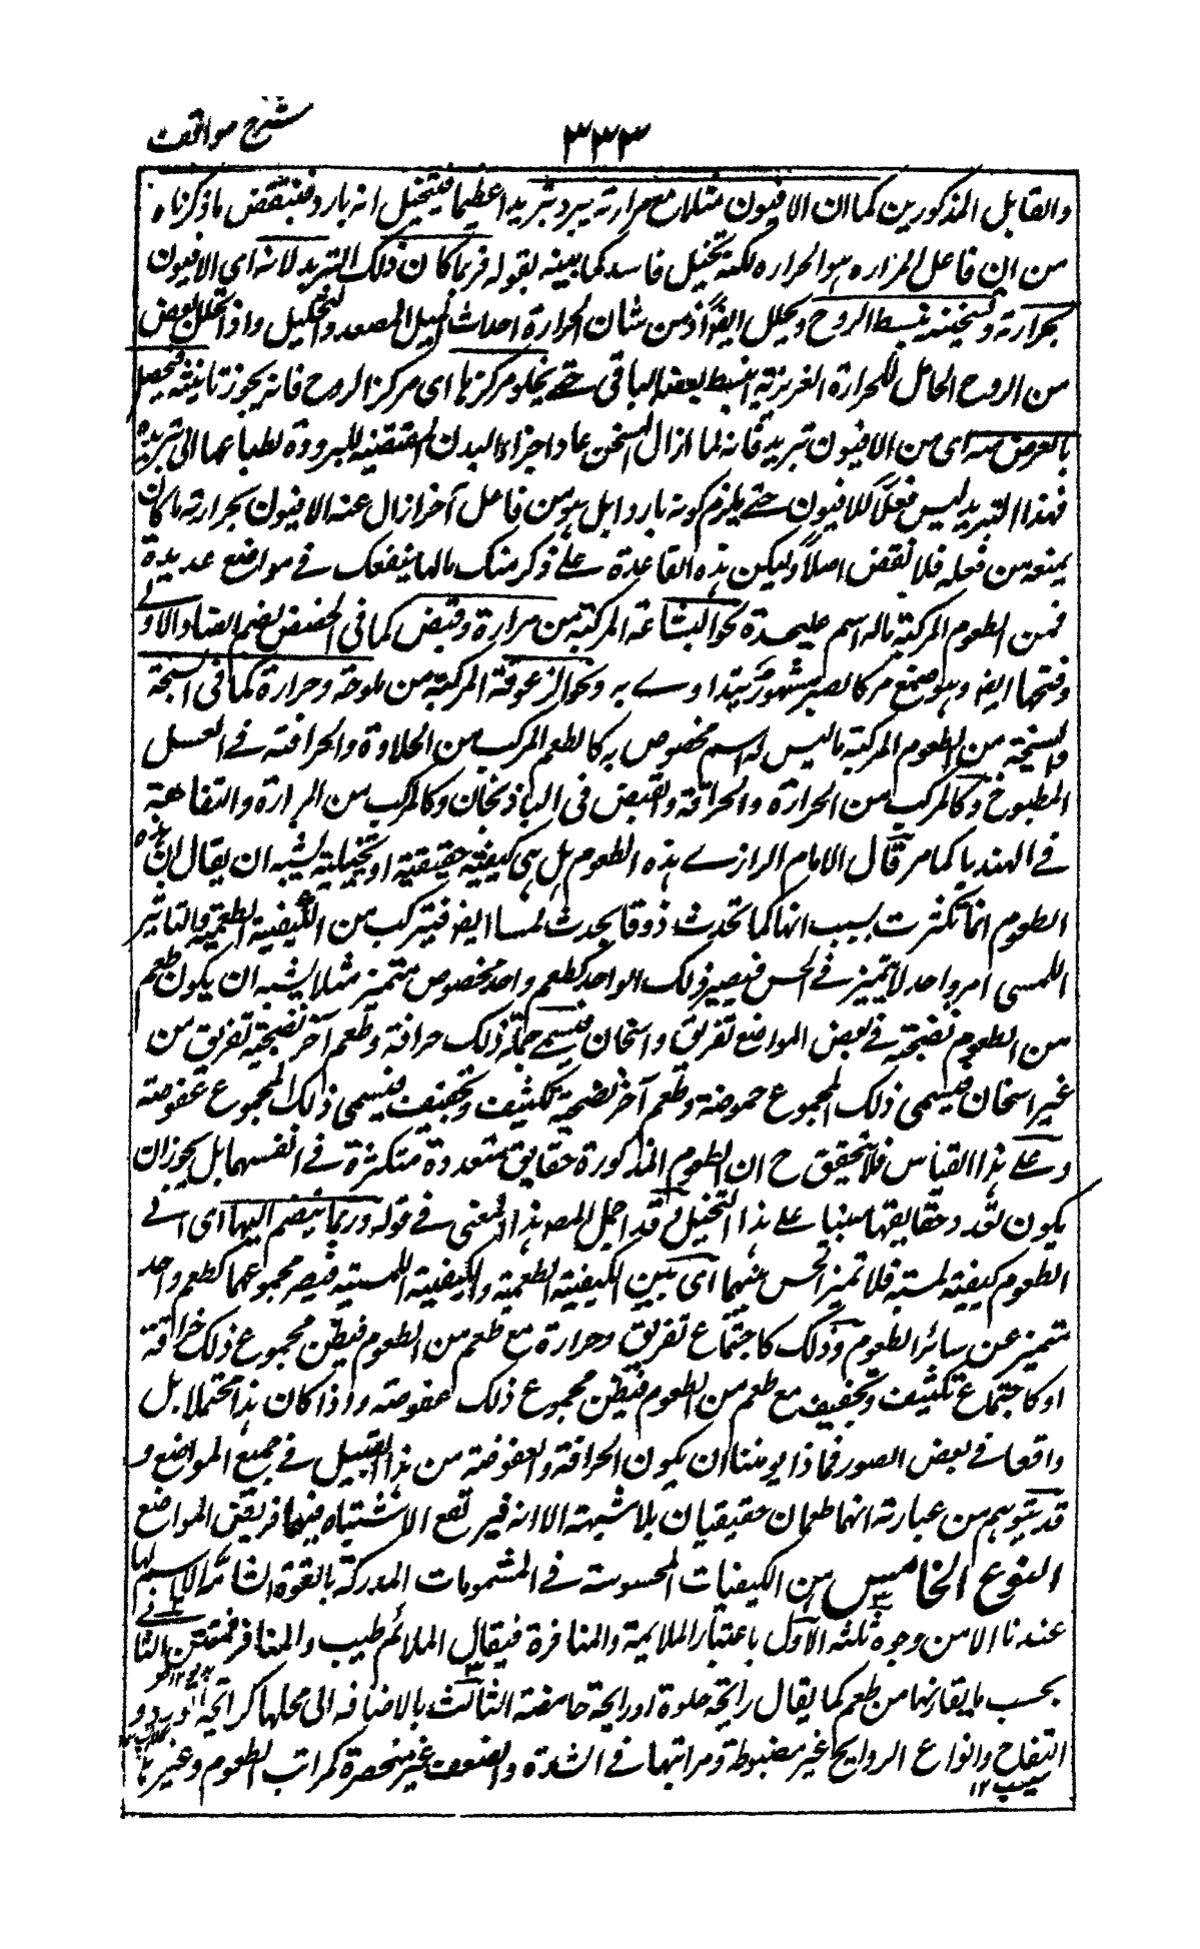 شرح مواقف
٣٣٣
والقابل المذكورين كما ان الافيون مثلا مع حرارته يبرد تبريدا عظيما فيتخيل انه بارد فينتقض ما ذكرناه
من ان فاعل المرارة هو الحرارة لكنه تخيل فاسد كما بينه بقوله فربما كان ذلك التبريد لانه اى الافيون
بحرارته وتسخينه يبسط الروح ويحلل ايضا اذ من شان الحرارة احداث الميل المصعد والتحليل واذا تحلل البعض
من الروح الحامل للحرارة الغريزية انبسط بعضه الباقى حتى يخلو مركزها اى مركز الروح فانه يجوز تانيثه فيحصل
بالعرض منه اى من الافيون تبريد فانه لما ازال المسخن عاد اجزاء البدن المقتضية للبرودة لطباعها الى تبريده
فهذا التبريد ليس فعلا للافيون حتى يلزم كونه باردا بل هو من فاعل آخر ازال عنه الافيون بحرارته ما كان
يمنعه من فعله فلا نقض اصلا وليكن هذه القاعدة على ذكر منك فانها ينفعك فى مواضع عديدة
فمن الطعوم المركبة ما له اسم عليحدة نحو البشاعة المركبة من مرارة وقبض كما فى الحضض بضم الضاد الاولى
وفتحها ايضا وهو صمغ مر كالصبر مشهور يتداوى به ونحو الزعوقة المركبة من ملوحة وحرارة كما فى السبخة
والسيخة من الطعوم المركبة ما ليس له اسم مخصوص به كالطعم المركب من الحلاوة والحرافة فى العسل
المطبوخ وكالمركب من المرارة والحرافة والقبض فى الباذنجان وكالمركب من المرارة والتفاهة
فى الهندبا كما مر قال الامام الرازى هذه الطعوم هل هى كيفية حقيقية او تخيلية يشبه ان يقال ان هذه
الطعوم انما تكثرت بسبب انها كما تحدث ذوقا يحدث لمسا ايضا فيتركب من الكيفية الطعمية والتاثير
اللمسى امر واحد لا يتميز فى الحس فيصير ذلك الواحد كطعم واحد مخصوص متميز مثلا يشبه ان يكون طعم
من الطعوم يصحبه فى بعض المواضع تفريق واسخان فيسمى جملة ذلك حرافة وطعم آخر يصحبه تفريق من
غير اسخان فيسمى ذلك المجموع حموضة وطعم آخر يصحبه تكثيف وتجفيف فيسمى ذلك المجموع عفوصة
وعلى هذا القياس فلا تحقق ح ان الطعوم المذكورة حقايق متعددة متكثرة فى انفسها بل يجوز ان
يكون تعدد حقايقها مبنيا على هذا التخيل وقد اجمل المصـ هذا المعنى فى قوله وربما ينضم اليها اى الى
الطعوم كيفية لمسية فلا تميز الحس بينهما اى بين الكيفية الطعمية والكيفية اللمسية فيصير مجموعهما كطعم واحد
متميز عن سائر الطعوم وذلك كاجتماع تفريق وحرارة مع طعم من الطعوم فيظن مجموع ذلك حرافة
او كاجتماع تكثيف وتجفيف مع طعم من الطعوم فيظن مجموع ذلك عفوصة واذا كان هذا محتملا بل
واقعا فى بعض الصور فماذا يومننا ان يكون الحرافة والعفوصة من هذا القبيل فى جميع المواضع و
قد يتوهم من عبارته انهما طعمان حقيقيان بلا شبهة الا انه قد يقع الاشتباه فيهما فى بعض المواضع
النوع الخامس من الكيفيات المحسوسة فى المشمومات المدركة بالقوة الشامة ولا اسم لها
عندنا الا من وجوه ثلثة الاول باعتبار الملائمة والمنافرة فيقال الملائم طيب والمنافر منتن الثانى
بحسب ما يقارنها من طعم كما يقال رايحة حلوة او رايحة حامضة الثالث بالاضافة الى محلها كرائحة الورد و
التفاح وانواع الروايح غير مضبوطة ومراتبها فى الشدة والضعف غير منحصرة كمراتب الطعوم وغيرها
سيب ١٢